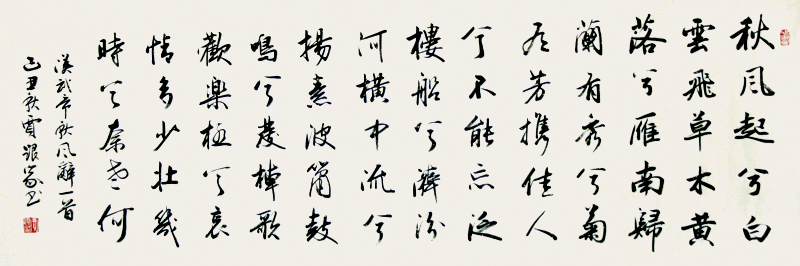 秋風起兮白
雲飛草木黄
落兮雁南歸
蘭有秀兮菊
有芳攜佳人
兮不能忘泛
樓船兮濟汾
河橫中流兮
揚素波簫鼓
鳴兮發棹歌
歡樂極兮哀
情多少壯幾
時兮奈老何
漢武帝秋風辭一首
己丑秋賈